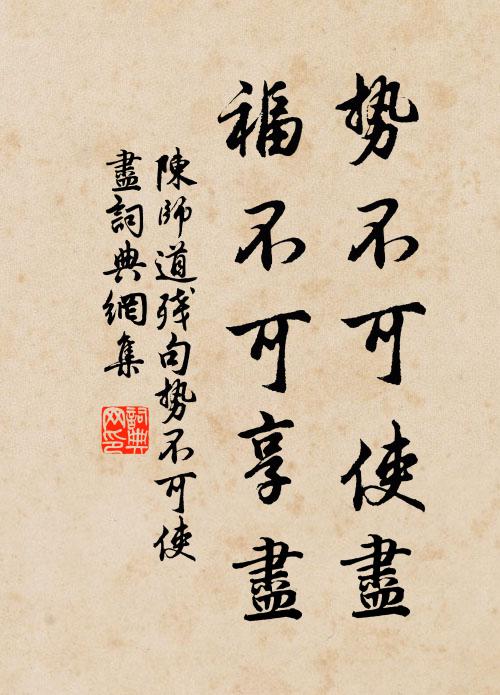 势不可使盡
福不可享盡
陳師道殘句势不可使
盡詞典網集
詞典
网印